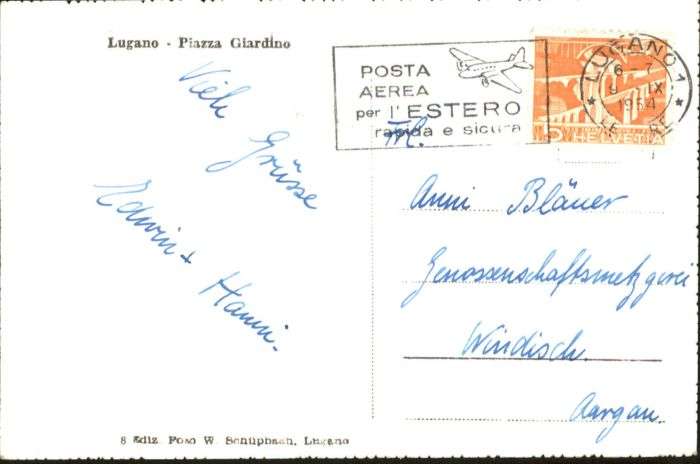 Lugano - Piazza Giardino
Viele
Grüsse
Edwin +
Hanni.
8 Ediz. Foto W. Schüpbach, Lugano
POSTA
AEREA
per l'ESTERO
rapida e sicura
LUGANO 1
6-7
9 IX
1954
5 HELVETIA
Frl.
Anni Bläuer
Genossenschaftsmetzgerei
Windisch.
Aargau.